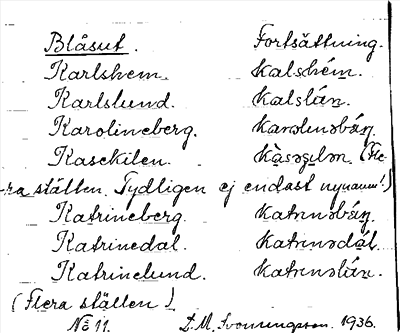 Blåsut. Fortsättning.
Karlshem. kalshém.
Karlslund. kalslún.
Karolineberg. karolinəbárj.
Kasekilen.
(Fle-
ra ställen. Tydligen ej endast nynamn!)
Katrineberg. katrinəbárj.
Katrinedal. katrinədál.
Katrinelund. katrinəlún.
(Flera ställen)
No 11. D. M. 1936.